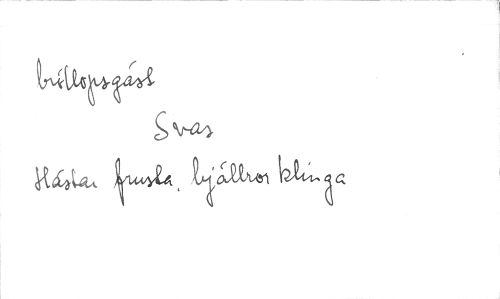 bröllopsgäst
Svar
Hästar frusta, bjällror klinga